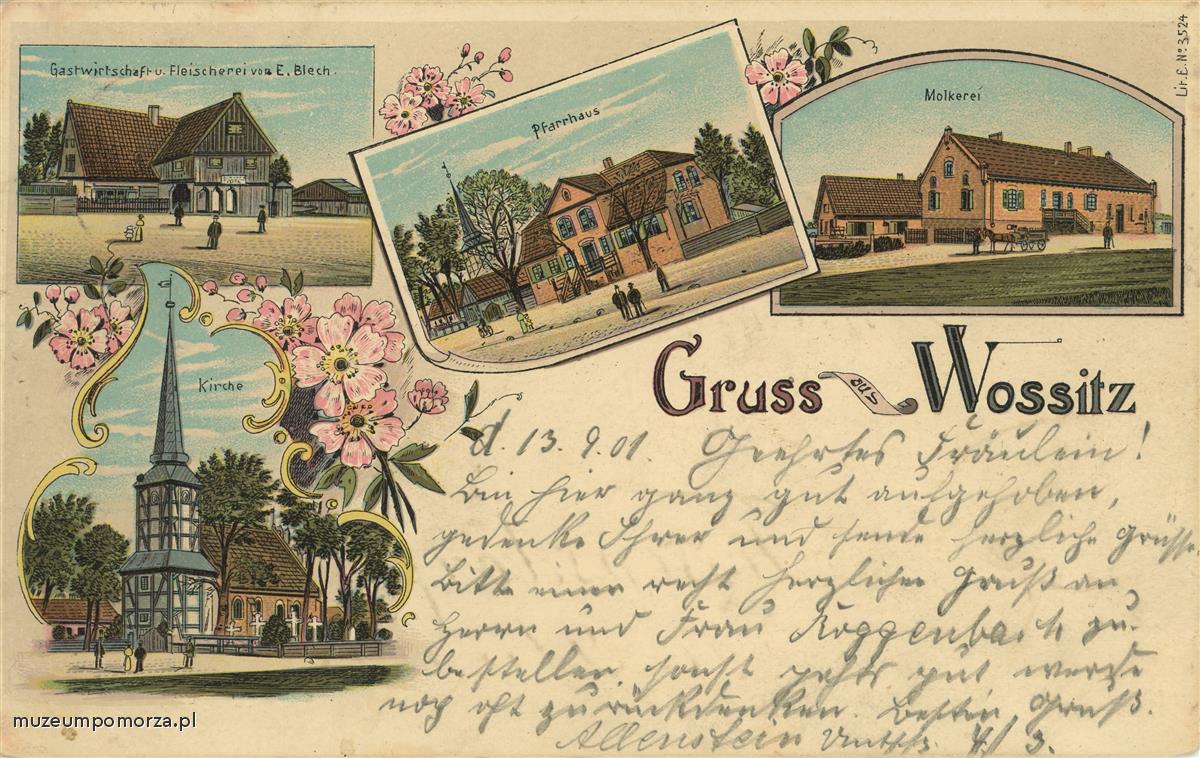 Lit. E. No. 3524
Gastwirtschaft u. Fleischerei von E. Blech.
Pfarrhaus
Molkerei
Kirche
Gruss aus Wossitz
d. 13. 9. 01. Geehrtes Fräulein!
Bin hier ganz gut aufgehoben,
gedenke Ihrer und sende herzliche Grüsse
Bitte einen recht herzlichen Gruß an
Herrn und Frau Roggenbach zu
bestellen, sonst gehts gut werde
noch oft zurückdenken besten Gruß.
Allenstein 4/3.
muzeumpomorza.pl